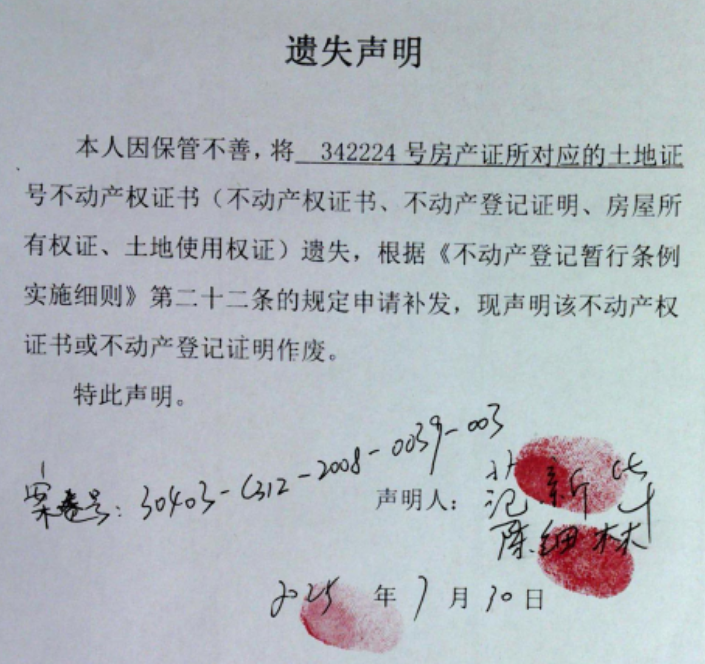 遗失声明
本人因保管不善，将 342224 号房产证所对应的土地证
号不动产权证书（不动产权证书、不动产登记证明、房屋所
有权证、土地使用权证）遗失，根据《不动产登记暂行条例
实施细则》第二十二条的规定申请补发，现声明该不动产权
证书或不动产登记证明作废。
特此声明。
案卷号：30403-C312-2008-0039-003
声明人：范新华
陈细林
2025 年 7 月 10 日